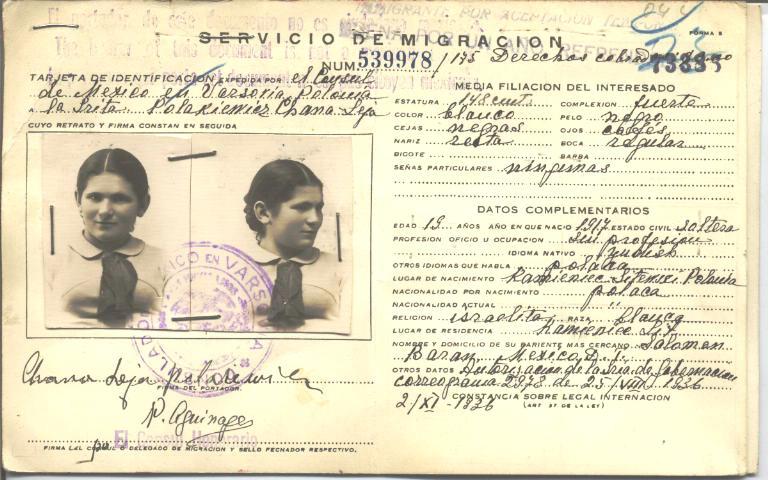 El portador de este documento no es
INMIGRANTE POR ACEPTACION
The bearer of this document is not a
FORMA 5
SERVICIO DE MIGRACION
NUM 539978 / 135 Derechos
73835
TARJETA DE IDENTIFICACION EXPEDIDA POR el Consul
de Mexico en Varsovia Polonia
a la Srita Polakiewicz Chana Leja
CUYO RETRATO Y FIRMA CONSTAN EN SEGUIDA
MEDIA FILIACION DEL INTERESADO
ESTATURA 148 cmt. COMPLEXION fuerte
COLOR blanco PELO negro
CEJAS negras OJOS cafés
NARIZ recta BOCA regular
BIGOTE BARBA
SEÑAS PARTICULARES ningunas
DATOS COMPLEMENTARIOS
EDAD 19 AÑOS AÑO EN QUE NACIO 1917 ESTADO CIVIL soltera
PROFESION OFICIO U OCUPACION sin profesion
IDIOMA NATIVO Yudish
OTROS IDIOMAS QUE HABLA polaca
LUGAR DE NACIMIENTO Kamieniec Polonia
NACIONALIDAD POR NACIMIENTO polaca
NACIONALIDAD ACTUAL "
RELIGION israelita RAZA blanca
LUGAR DE RESIDENCIA Kamieniec Lit.
NOMBRE Y DOMICILIO DE SU PARIENTE MAS CERCANO Salomon
Baran, Mexico D.F.
OTROS DATOS Autorizacion de la Sria de Gobernacion
correograma 2978 de 25/VIII/1936
2/XI-1936 CONSTANCIA SOBRE LEGAL INTERNACION
(ART 57 DE LA LEY)
MEXICO EN VARSOVIA
Chana Leja Polakiewicz
FIRMA DEL PORTADOR.
P. Aguinaga
El Consul Honorario
FIRMA DEL CONSUL O DELEGADO DE MIGRACION Y SELLO FECHADOR RESPECTIVO.